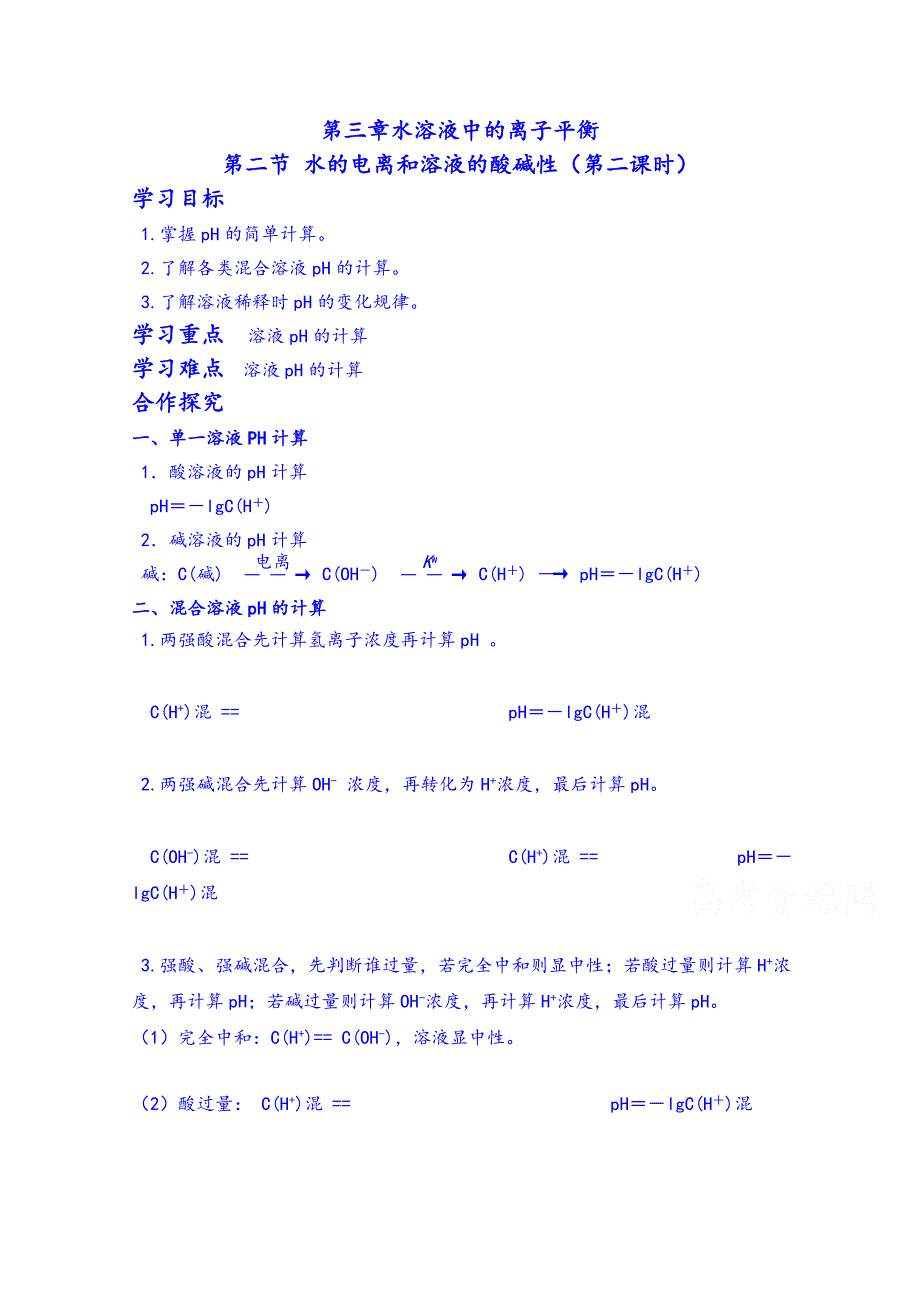 第三章水溶液中的离子平衡
第二节 水的电离和溶液的酸碱性（第二课时）
学习目标
1.掌握pH的简单计算。
2.了解各类混合溶液pH的计算。
3.了解溶液稀释时pH的变化规律。
学习重点 溶液pH的计算
学习难点 溶液pH的计算
合作探究
一、单一溶液PH计算
1．酸溶液的pH计算
pH＝－lgC(H⁺)
2．碱溶液的pH计算
电离 Kw
碱：C(碱) ——→ C(OH⁻) ——→ C(H⁺) ⟶ pH＝－lgC(H⁺)
二、混合溶液pH的计算
1.两强酸混合先计算氢离子浓度再计算pH 。
C(H⁺)混 == pH＝－lgC(H⁺)混
2.两强碱混合先计算OH⁻ 浓度，再转化为H⁺浓度，最后计算pH。
C(OH⁻)混 == C(H⁺)混 == pH＝－
lgC(H⁺)混
高考资源网
3.强酸、强碱混合，先判断谁过量，若完全中和则显中性；若酸过量则计算H⁺浓
度，再计算pH；若碱过量则计算OH⁻浓度，再计算H⁺浓度，最后计算pH。
（1）完全中和：C(H⁺)== C(OH⁻)，溶液显中性。
（2）酸过量： C(H⁺)混 == pH＝－lgC(H⁺)混